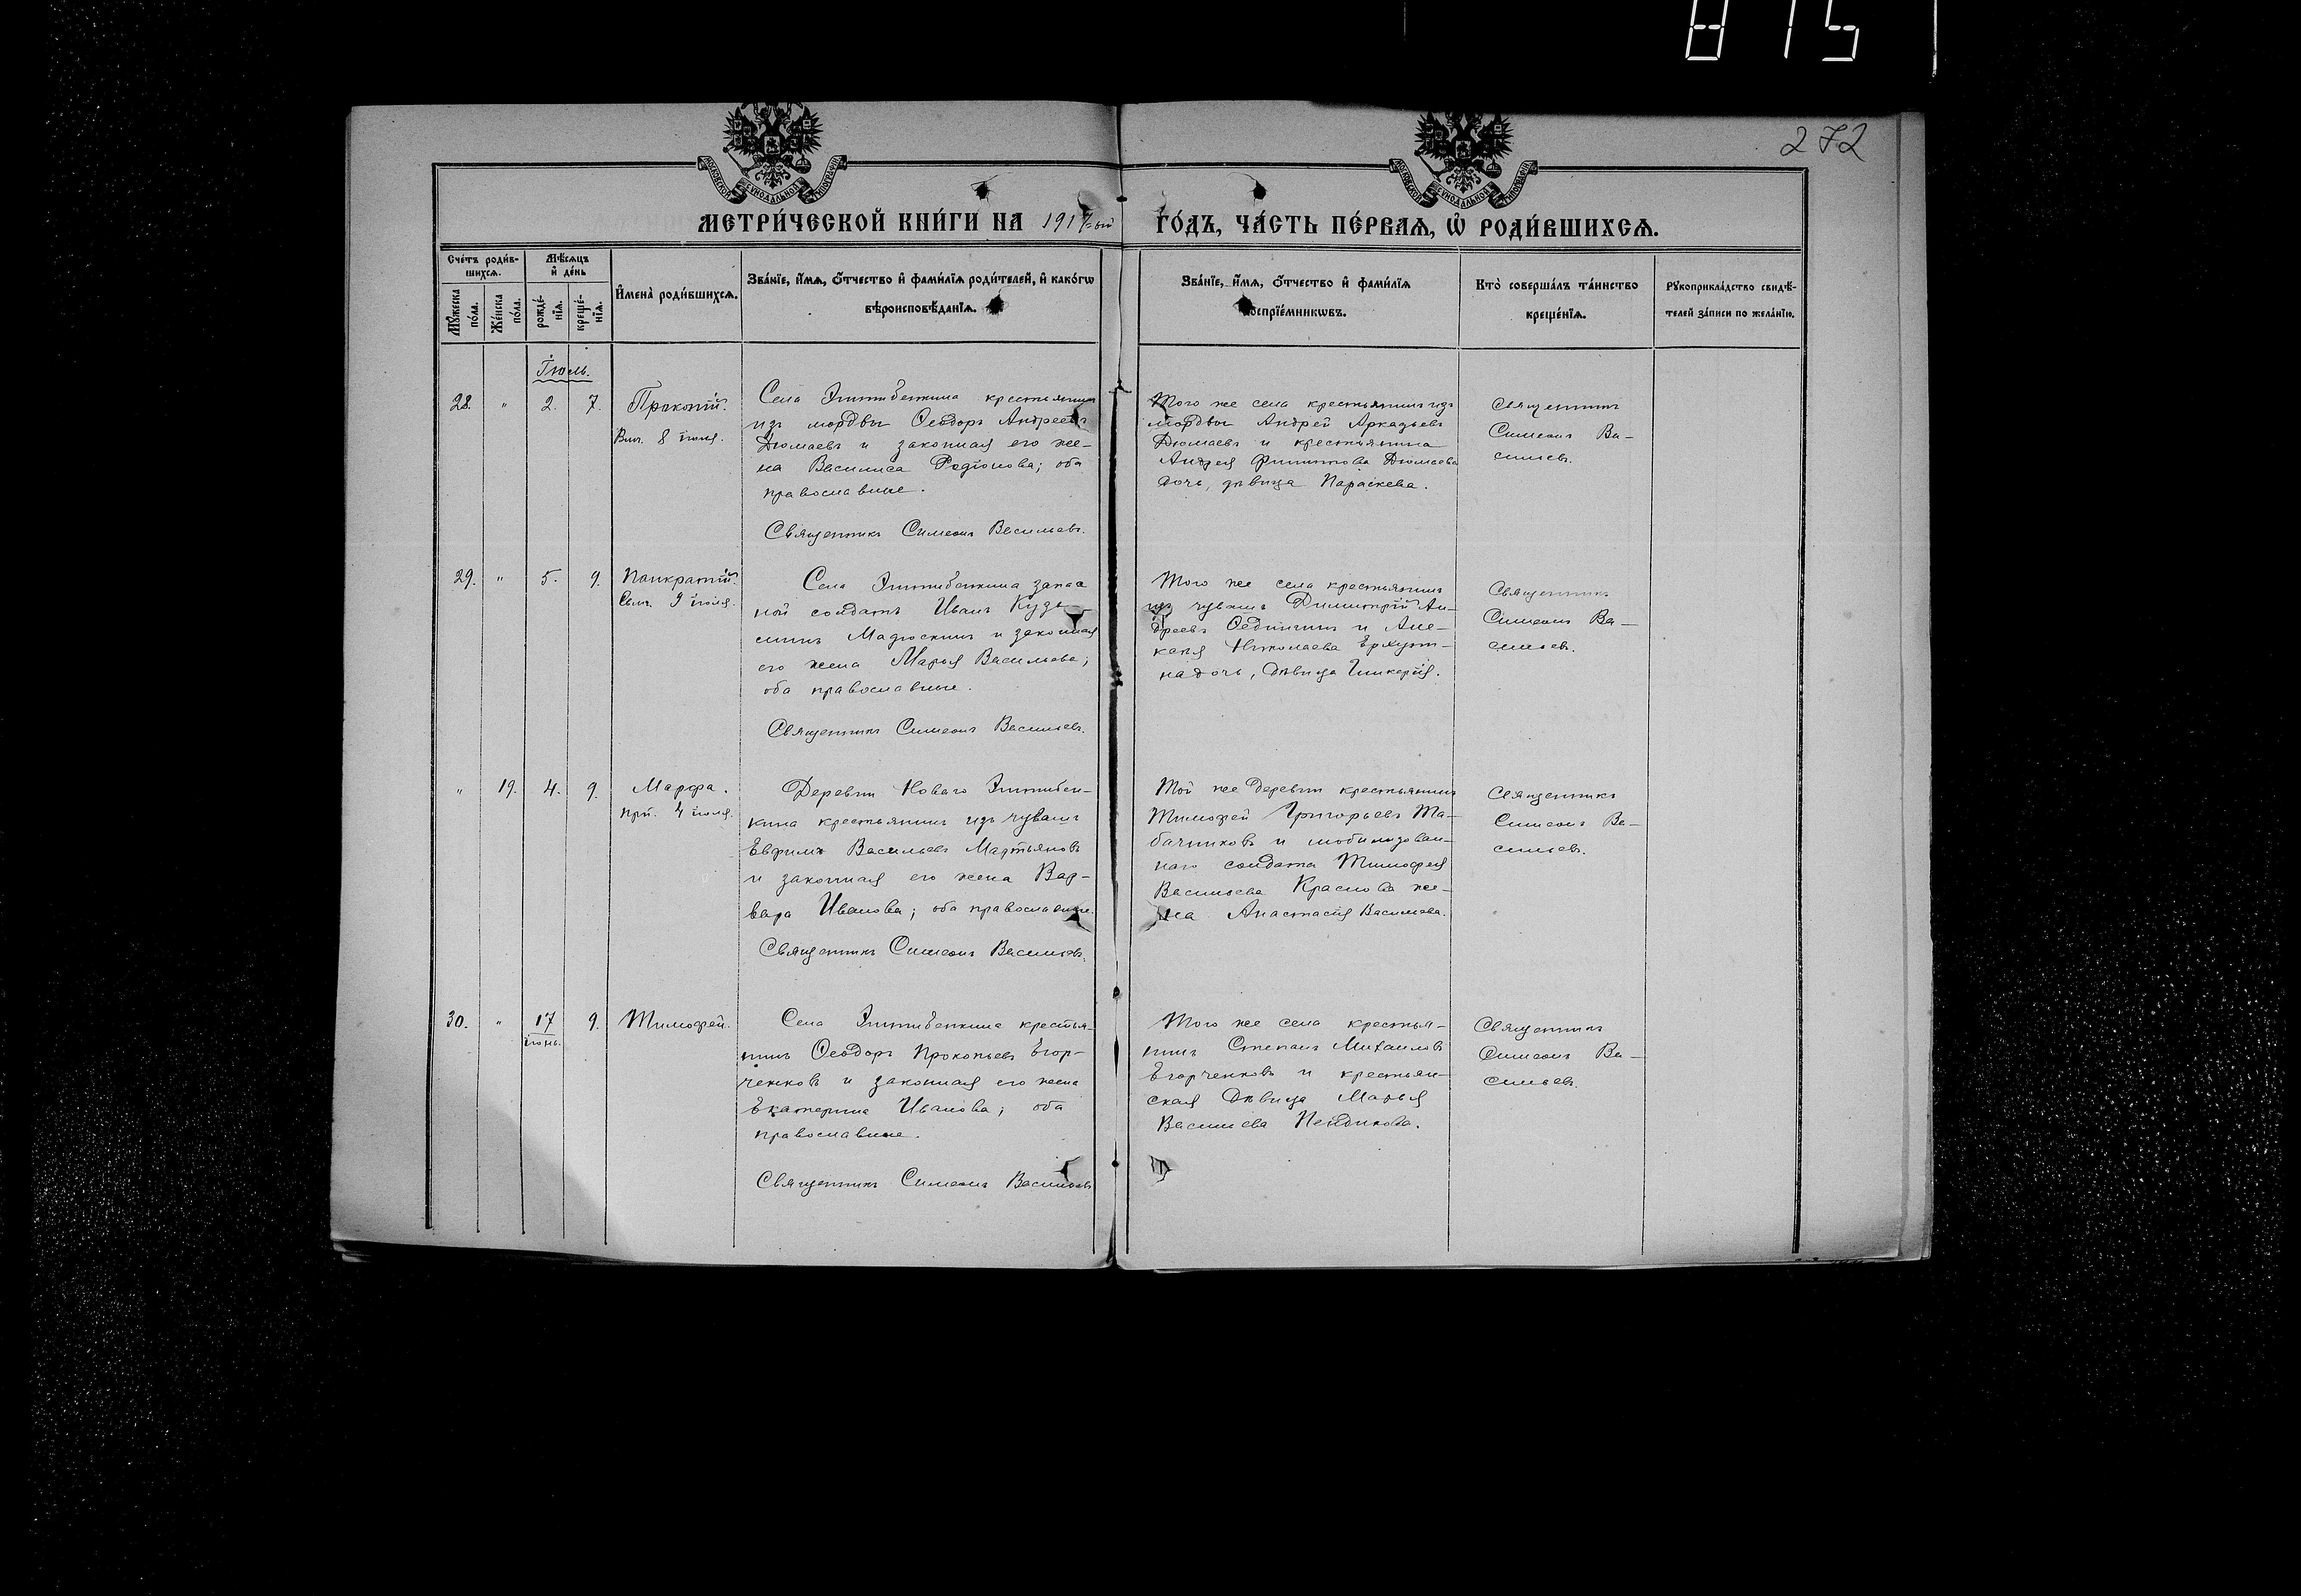 815
272
МОСКОВСКОЙ СѴНОДАЛЬНОЙ ТИПОГРАФІИ
МОСКОВСКОЙ СѴНОДАЛЬНОЙ ТИПОГРАФІИ
МЕТРИ́ЧЕСКОЙ КНИ́ГИ НА 1917-ый ГО́ДЪ, ЧА́СТЬ ПЕ́РВАѦ, Ѽ РОДИ́ВШИХСѦ.
Сче́тъ роди́в-
шихсѧ.
Мѣ́сѧцъ
и҆ де́нь
Мꙋ́жеска
по́ла.
Же́нска
по́ла.
рожде́-
нїѧ.
креще́-
нїѧ.
И҆мена̀ роди́вшихсѧ.
Зва́нїе, и҆́мѧ, ѻ҆́тчество и҆ фами́лїѧ роди́телей, и҆ како́гѡ
вѣроисповѣ́данїѧ.
Зва́нїе, и҆́мѧ, ѻ҆́тчество и҆ фами́лїѧ
воспрїе́мникѡвъ.
Кто̀ соверша́лъ та́инство
креще́нїѧ.
Рꙋкоприкла́дство свидѣ́-
телей за́писи по жела́нїю.
Іюль.
28. " 2. 7. Прокопій.
8 іюля.
Села Эштебенькина крестьянинъ
изъ мордвы Ѳеодоръ Андреевъ
Дюмаевъ и законная его же-
на Василиса Родіонова; оба
православные.
Священникъ Симеонъ Васильевъ.
Того же села крестьянинъ изъ
мордвы Андрей Аркадьевъ
Дюмаевъ и крестьянина
Андрея Филиппова Дюмаева
дочь, дѣвица Параскева.
Священникъ
Симеонъ Ва-
сильевъ.
29. " 5. 9. Панкратій.
9 іюля.
Села Эштебенькина запас
ной солдатъ Иванъ Кузь-
минъ и законная
его жена Марья Васильева;
оба православные.
Священникъ Симеонъ Васильевъ.
Того же села крестьянинъ
изъ чувашъ Димитрій Ан-
дреевъ и
Николаева
на дочь, дѣвица Гликерія.
Священникъ
Симеонъ Ва-
сильевъ.
" 19. 4. 9. Марѳа.
4 іюля.
Деревни Новаго Эштебень-
кина крестьянинъ изъ чувашъ
Евфимъ Васильевъ Мартьяновъ
и законная его жена Вар-
вара Иванова; оба православные.
Священникъ Симеонъ Васильевъ.
Той же деревни крестьянинъ
Тимофей Григорьевъ Та-
бачниковъ и мобилизован-
наго солдата Тимофея
Васильева Краснова же-
на Анастасія Васильева.
Священникъ
Симеонъ Ва-
сильевъ.
30. " 17 9. Тимофей.
іюнь.
Села Эштебенькина крестья-
нинъ Ѳеодоръ Прокопьевъ Егор-
ченковъ и законная его жена
Екатерина Иванова; оба
православные.
Священникъ Симеонъ Васильевъ
Того же села крестья-
нинъ Степанъ Михайловъ
Егорченковъ и крестьян-
ская дѣвица Марья
Васильева Пендюкова.
Священникъ
Симеонъ Ва-
сильевъ.